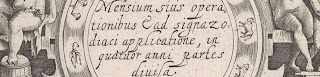 Mensium sius opera
tionibus & ad signa zo
diaci applicatione, in
quátuor anni partes
diuisa